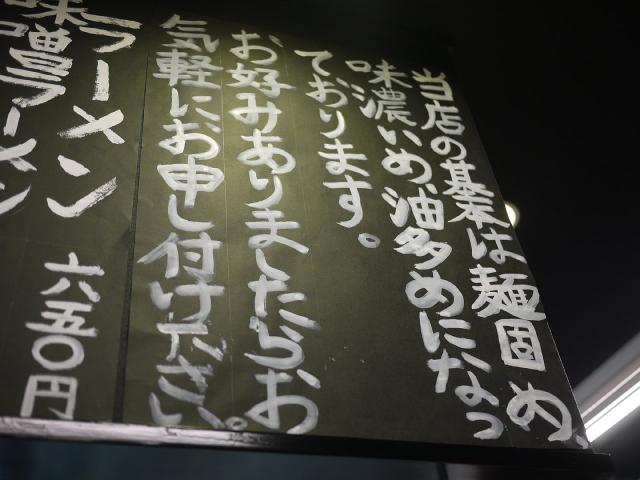 当店の基本は麺固め、
味濃いめ、油多めになっ
ております。
お好みありましたらお
気軽にお申し付け下さい。
ラーメン 六五〇円
味噌ラーメン